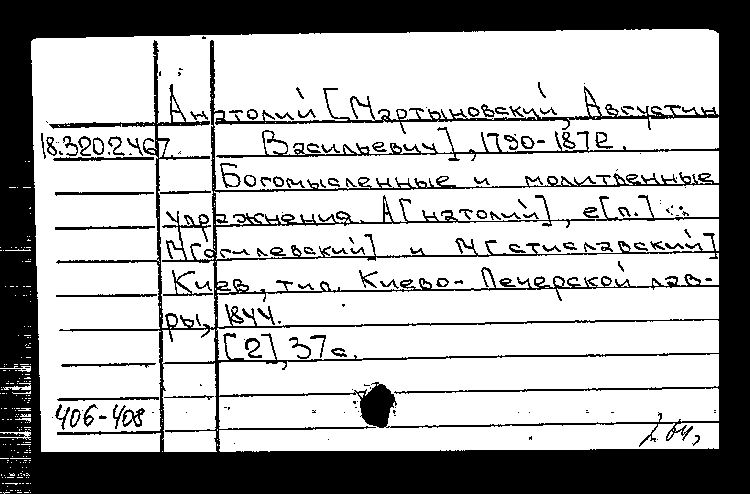 Анатолий [Мартыновский, Августин
18.320.2.467. Васильевич], 1790-1872.
Богомысленные и молитвенные
упражнения. А[натолий], е[п.]
М[огилевский] и М[стиславский]
Киев, тип. Киево-Печерской лав-
ры, 1844.
[2], 37 с.
406-408